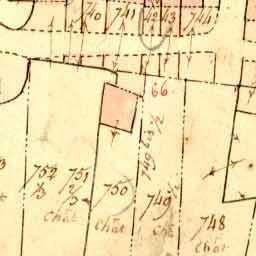 740 741 42 43 744
66.
749 bis 1/2
752 751 750 749 1/2 748
1/3 2/3
chât chât chât